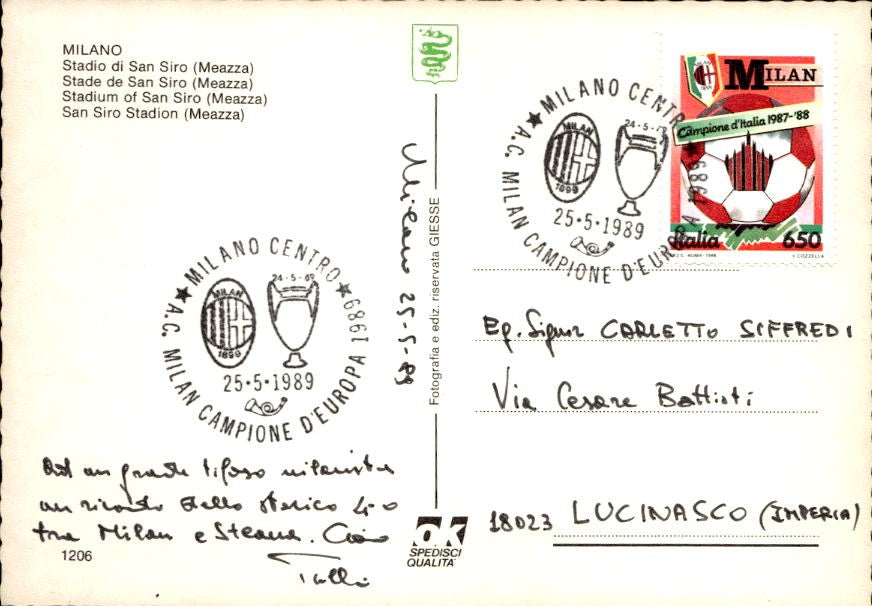 MILANO
Stadio di San Siro (Meazza)
Stade de San Siro (Meazza)
Stadium of San Siro (Meazza)
San Siro Stadion (Meazza)
★ MILANO CENTRO ★
A.C. MILAN CAMPIONE D'EUROPA 1989
MILAN
1899
24-5-89
25-5-1989
Ad un grande tifoso milanista
un ricordo dello storico 4-0
tra Milan e Steaua. Ciao
1206
Milano 25-5-89
Fotografia e ediz. riservata GIESSE
OK
SPEDISCI
QUALITA'
★ MILANO CENTRO ★
A.C. MILAN CAMPIONE D'EUROPA 1989
MILAN
1899
24-5-89
25-5-1989
MILAN
Campione d'Italia 1987-'88
Italia 650
I.P.Z.S. ROMA - 1988
V. COZZELLA
Eg. Signor CARLETTO SIFFREDI
Via Cesare Battisti
18023 LUCINASCO (IMPERIA)